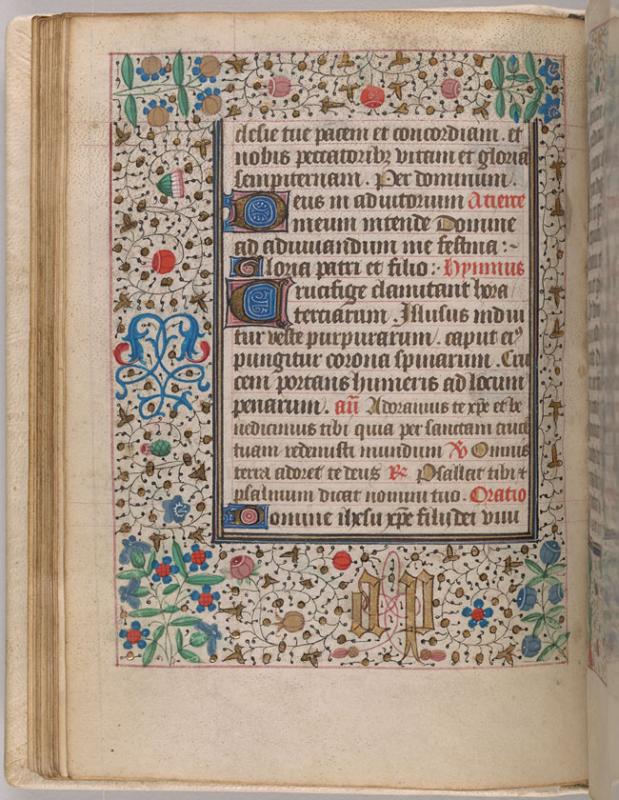 clesie tue pacem et concordiam. et
nobis peccatoribꝫ vitam et gloria
sempiternam. Per dominum.
Deus in adiutorium A tierce
meum intende Domine
ad adiuuandum me festina :~
Gloria patri et filio :~ Hymnus
Crucifige clamitant hora
terciarum. Illusus indui
tur veste purpurarum. caput eiꝰ
pungitur corona spinarum. Cru
cem portans humeris ad locum
penarum. añ Adoramus te xp̄e et be
nedicimus tibi quia per sanctam cruce
tuam redemisti mundum V̄ Omnis
terra adoret te deus R̄ Psallat tibi et
psalmum dicat nomini tuo. Oratio
Domine ihesu xp̄e filij dei viui